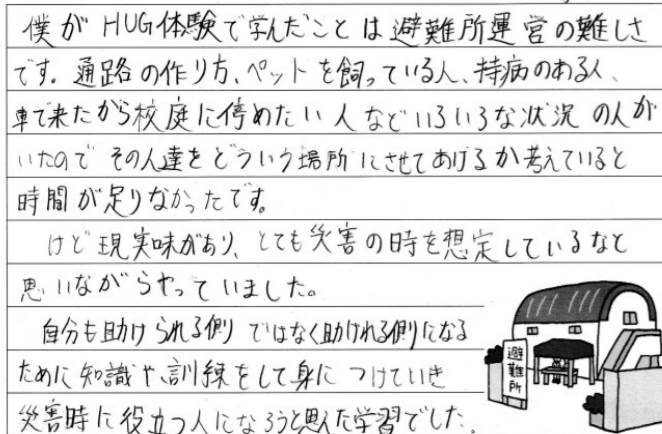 僕が HUG体験で学んだことは避難所運営の難しさ
です。通路の作り方、ペットを飼っている人、持病のある人、
車で来たから校庭に停めたい人などいろいろな状況の人が
いたのでその人達をどういう場所にさせてあげるか考えていると
時間が足りなかったです。
けど現実味があり、とても災害の時を想定しているなと
思いながらやっていました。
自分も助けられる側ではなく助けれる側になる
ために知識や訓練をして身につけていき
災害時に役立つ人になろうと思えた学習でした。
避難所